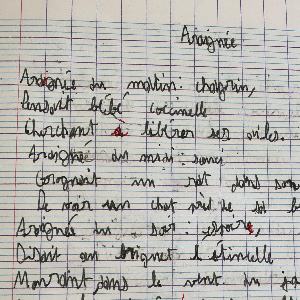 Araignée
Araignée du matin : chagrin,
Pensait bébé coccinelle
Cherchant à libérer ses ailes.
Araignée du midi : souci
Grognait un rat dans son
De voir un chat près de
Araignée du soir : espoir,
Disait en l'étincelle
Mourant dans le vent du